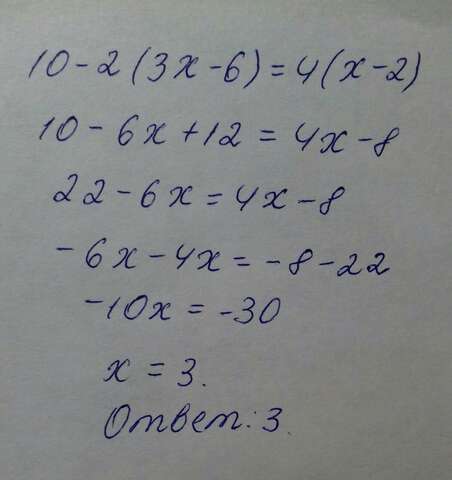 10-2(3x-6)=4(x-2)
10-6x+12=4x-8
22-6x=4x-8
-6x-4x=-8-22
-10x=-30
x=3.
Ответ: 3.